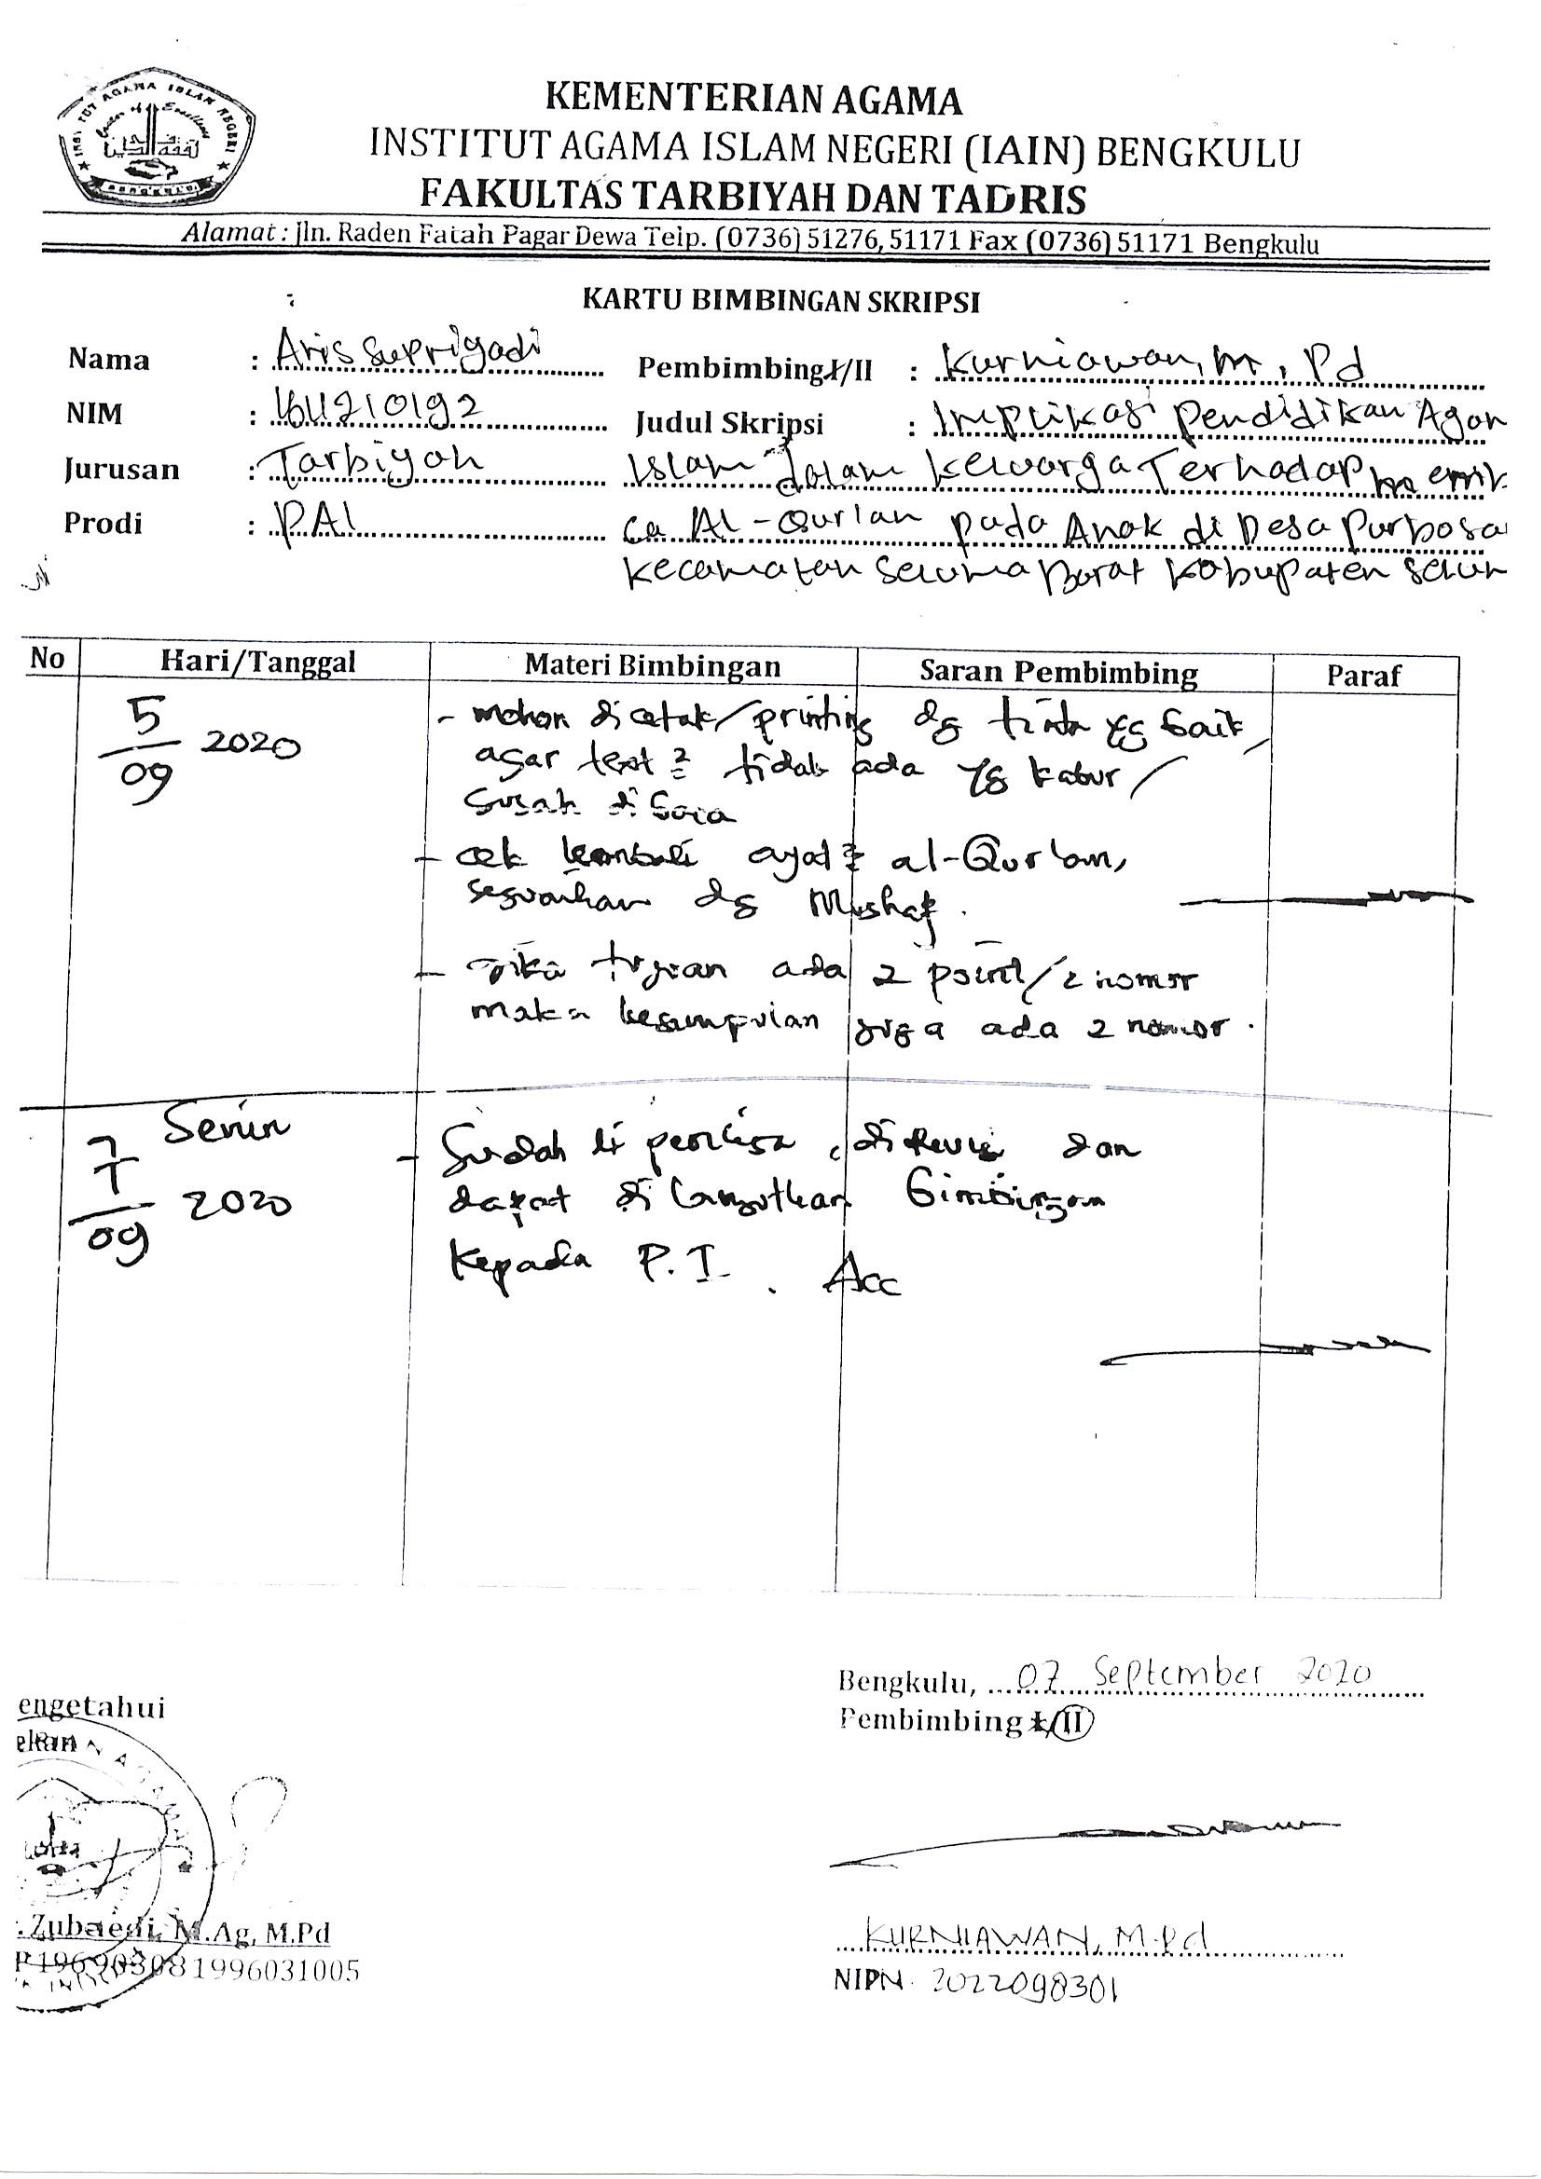 KEMENTERIAN AGAMA
INSTITUT AGAMA ISLAM NEGERI (IAIN) BENGKULU
FAKULTAS TARBIYAH DAN TADRIS
Alamat : Jln. Raden Fatah Pagar Dewa Telp. (0736) 51276, 51171 Fax (0736) 51171 Bengkulu
KARTU BIMBINGAN SKRIPSI
Nama : Aris Supriyadi
NIM : 1611210192
Jurusan : Tarbiyah
Prodi : PAI
Pembimbing I/II : Kurniawan, M, Pd
Judul Skripsi : Implikasi Pendidikan Agam
Islam dalam Keluarga Terhadap Memb
ca Al-Qur'an pada Anak di Desa Purbosa
Kecamatan Seluma Barat Kabupaten Selum
No Hari/Tanggal Materi Bimbingan Saran Pembimbing Paraf
5/09 2020
- mohon dicetak/printing dg tinta yg baik,
agar text2 tidak ada yg kabur/
susah dibaca
- cek kembali ayat2 al-Qur'an,
sesuaikan dg Mushaf.
- jika tujuan ada 2 point/2 nomor
maka kesimpulan juga ada 2 nomor.
Senin
7/09 2020
- Sudah di periksa, direvisi dan
dapat dilanjutkan bimbingan
kepada P.I. Acc
Bengkulu, 07 September 2020
Pembimbing I/II
KURNIAWAN, M.Pd
NIPN. 2022098301
engetahui
ekan
. Zubaedi, M.Ag, M.Pd
P 196903081996031005